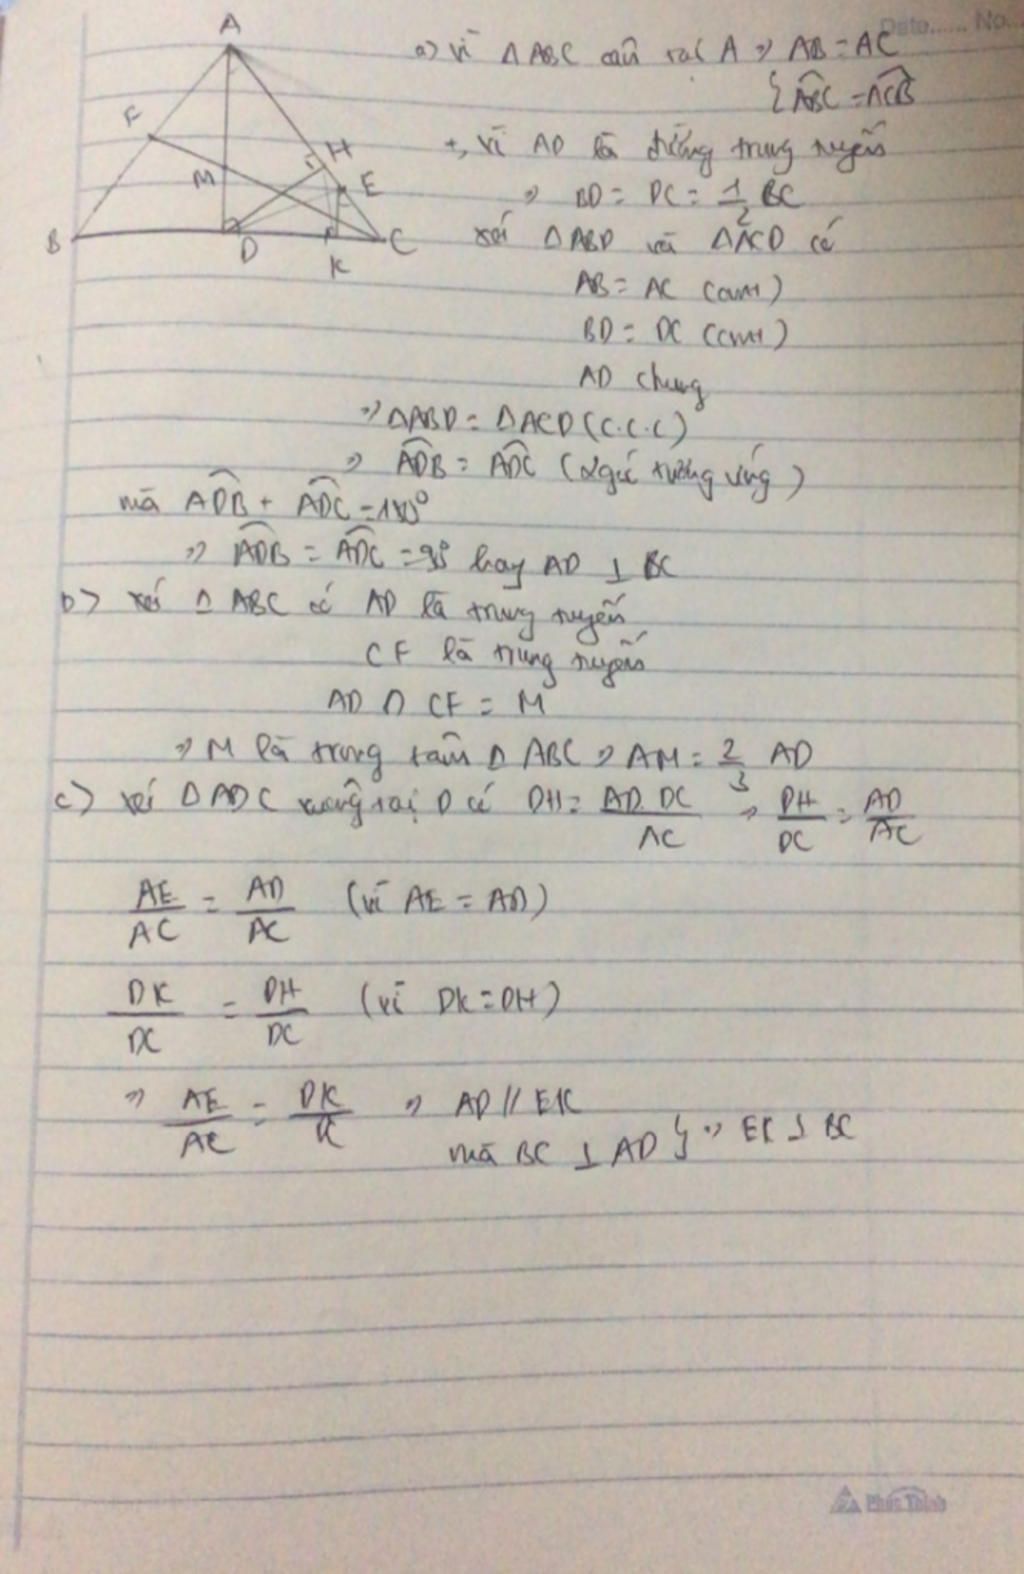 Date...... No...
A
F
H
M
E
B
D
K
C
a) vì Δ ABC cân tại A => AB = AC
{ ABC = ACB
+, vì AD là đường trung tuyến
=> BD = DC = 1/2 BC
xét Δ ABD và Δ ACD có
AB = AC (cmt)
BD = DC (cmt)
AD chung
=> ΔABD = ΔACD (c.c.c)
=> ADB = ADC (2 góc tương ứng)
mà ADB + ADC = 180°
=> ADB = ADC = 90° hay AD ⊥ BC
b) xét Δ ABC có AD là trung tuyến
CF là trung tuyến
AD ∩ CF = M
=> M là trọng tâm Δ ABC => AM = 2/3 AD
c) xét Δ ADC vuông tại D có DH = AD.DC/AC => DH/DC = AD/AC
AE/AC = AD/AC (vì AE = AD)
DK/DC = DH/DC (vì DK = DH)
=> AE/AC = DK/DC => AD // EK
mà BC ⊥ AD } => EK ⊥ BC
Phúc Thịnh